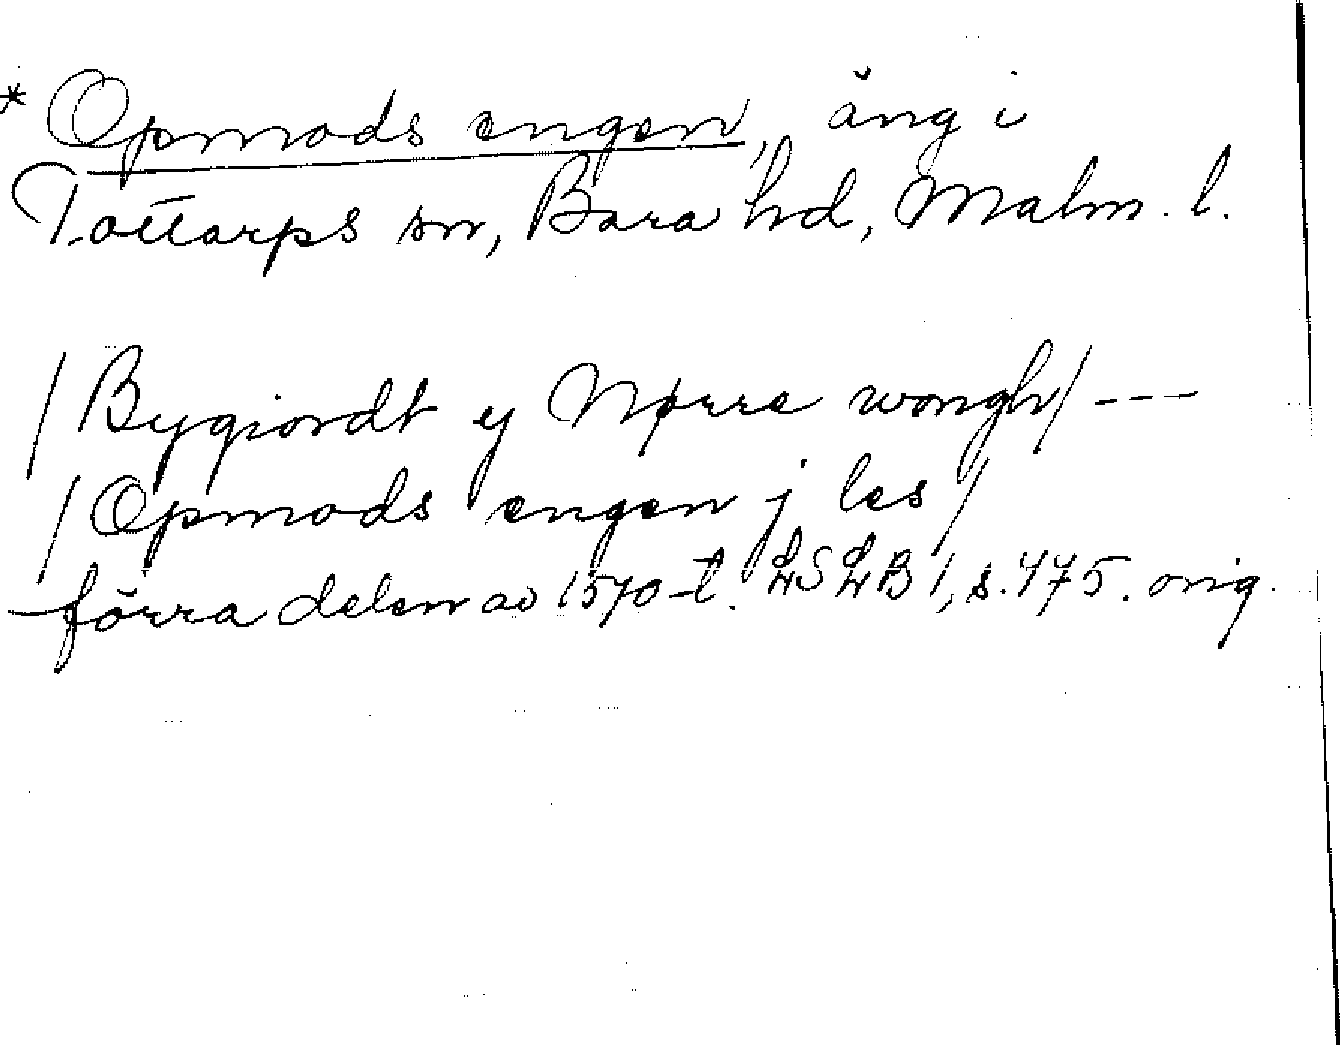 * Opmods engen, äng i
Tottarps sn, Bara hd, Malm. l.
/Bygiordt ij Nørre wongh/ ---
/Opmods engen j les/
förra delen av 1570-t. LSLB 1, s. 475. orig.